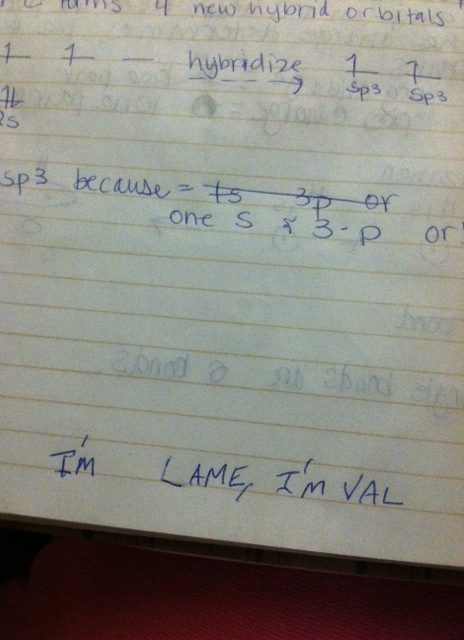 4 new hybrid orbitals
1 1 — hybridize 1 1
sp3 sp3
sp3 because = 1s 3p or
one s & 3-p or
I'M LAME, I'M VAL